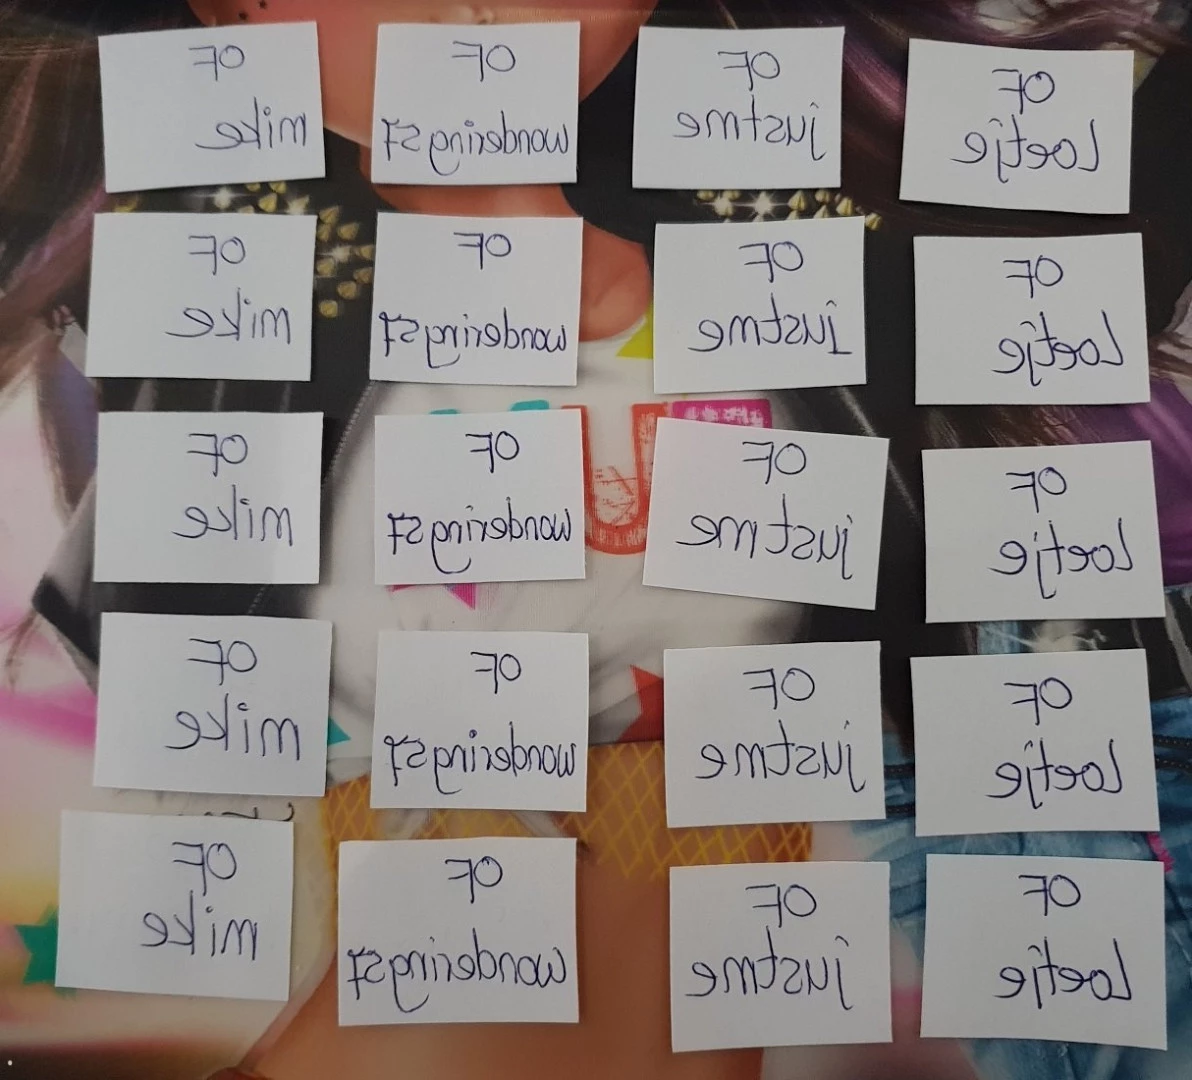 OF
mike
OF
wondering57
OF
justme
OF
Loetje
OF
mike
OF
wondering57
OF
Justme
OF
Loetje
OF
mike
OF
wondering57
OF
justme
OF
Loetje
OF
mike
OF
wondering57
OF
justme
OF
Loetje
OF
mike
OF
wondering57
OF
justme
OF
Loetje